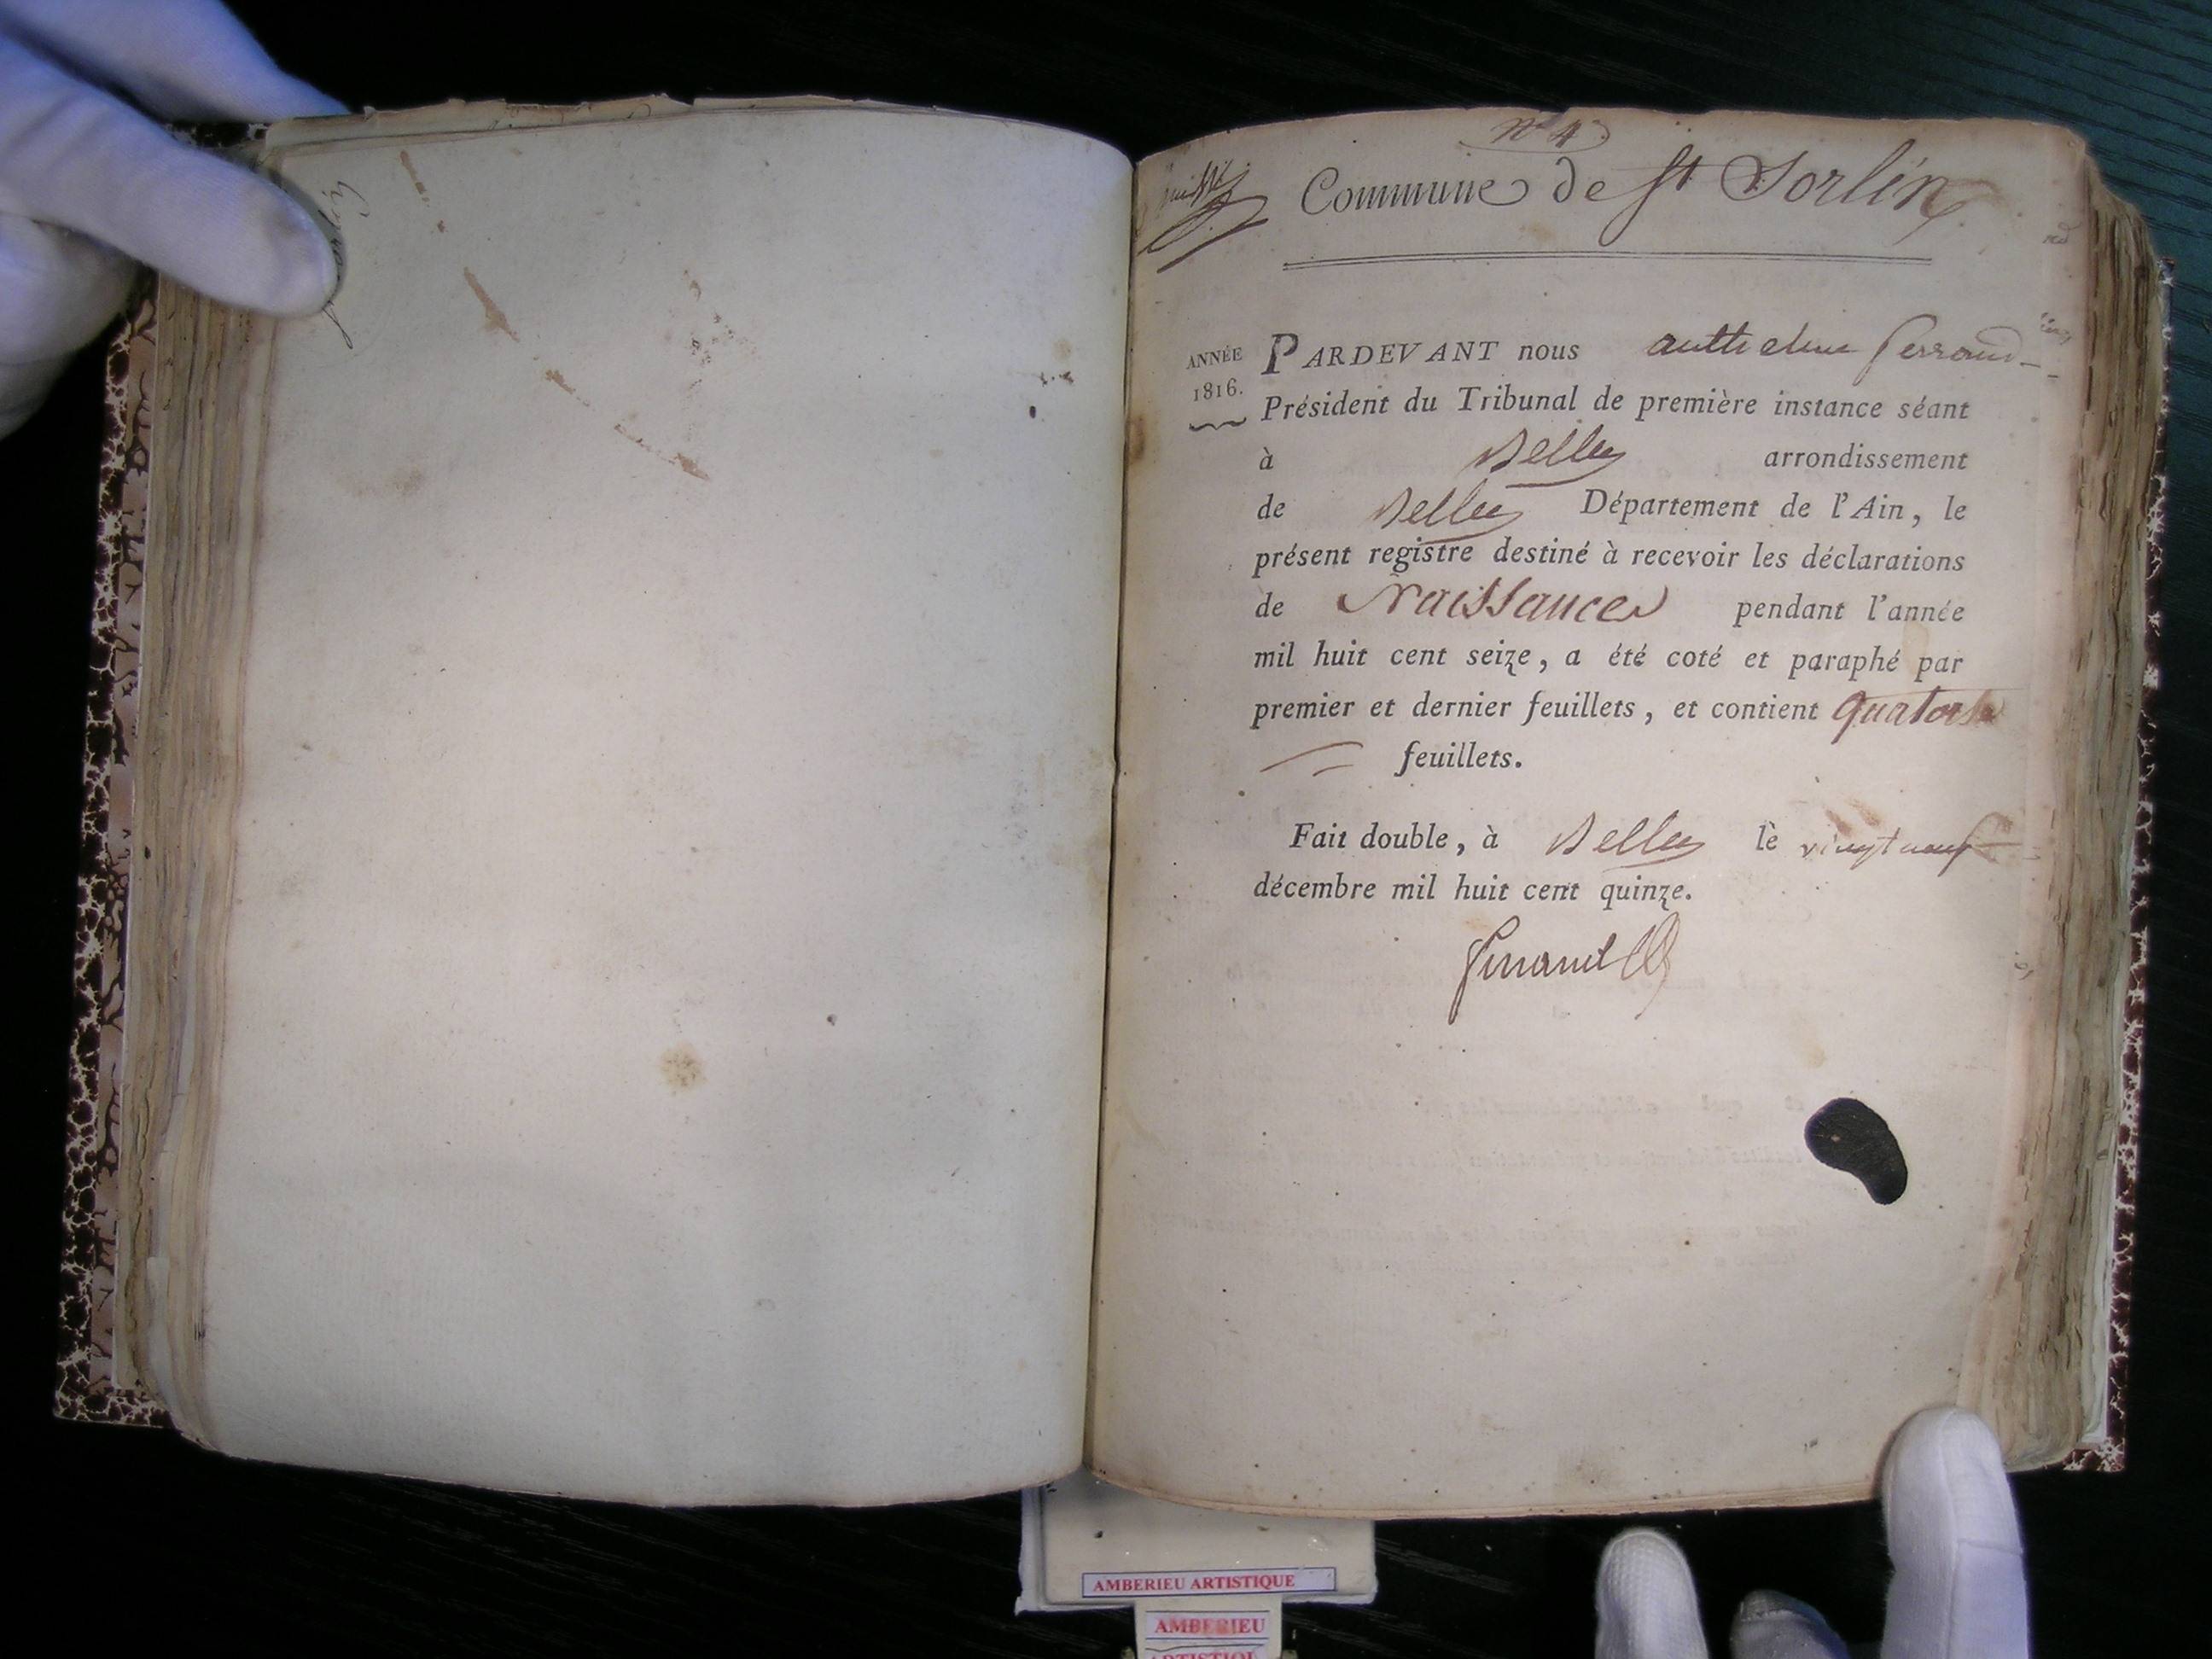 n° 4
Commune de St Sorlin
ANNÉE
1816.
PARDEVANT nous anthelme
Président du Tribunal de première instance séant
à Belley arrondissement
de Belley Département de l'Ain, le
présent registre destiné à recevoir les déclarations
de Naissances pendant l'année
mil huit cent seize, a été coté et paraphé par
premier et dernier feuillets, et contient quatorse
feuillets.
Fait double, à Belley le vingt neuf
décembre mil huit cent quinze.
AMBERIEU ARTISTIQUE
AMBERIEU
ARTISTIQUE